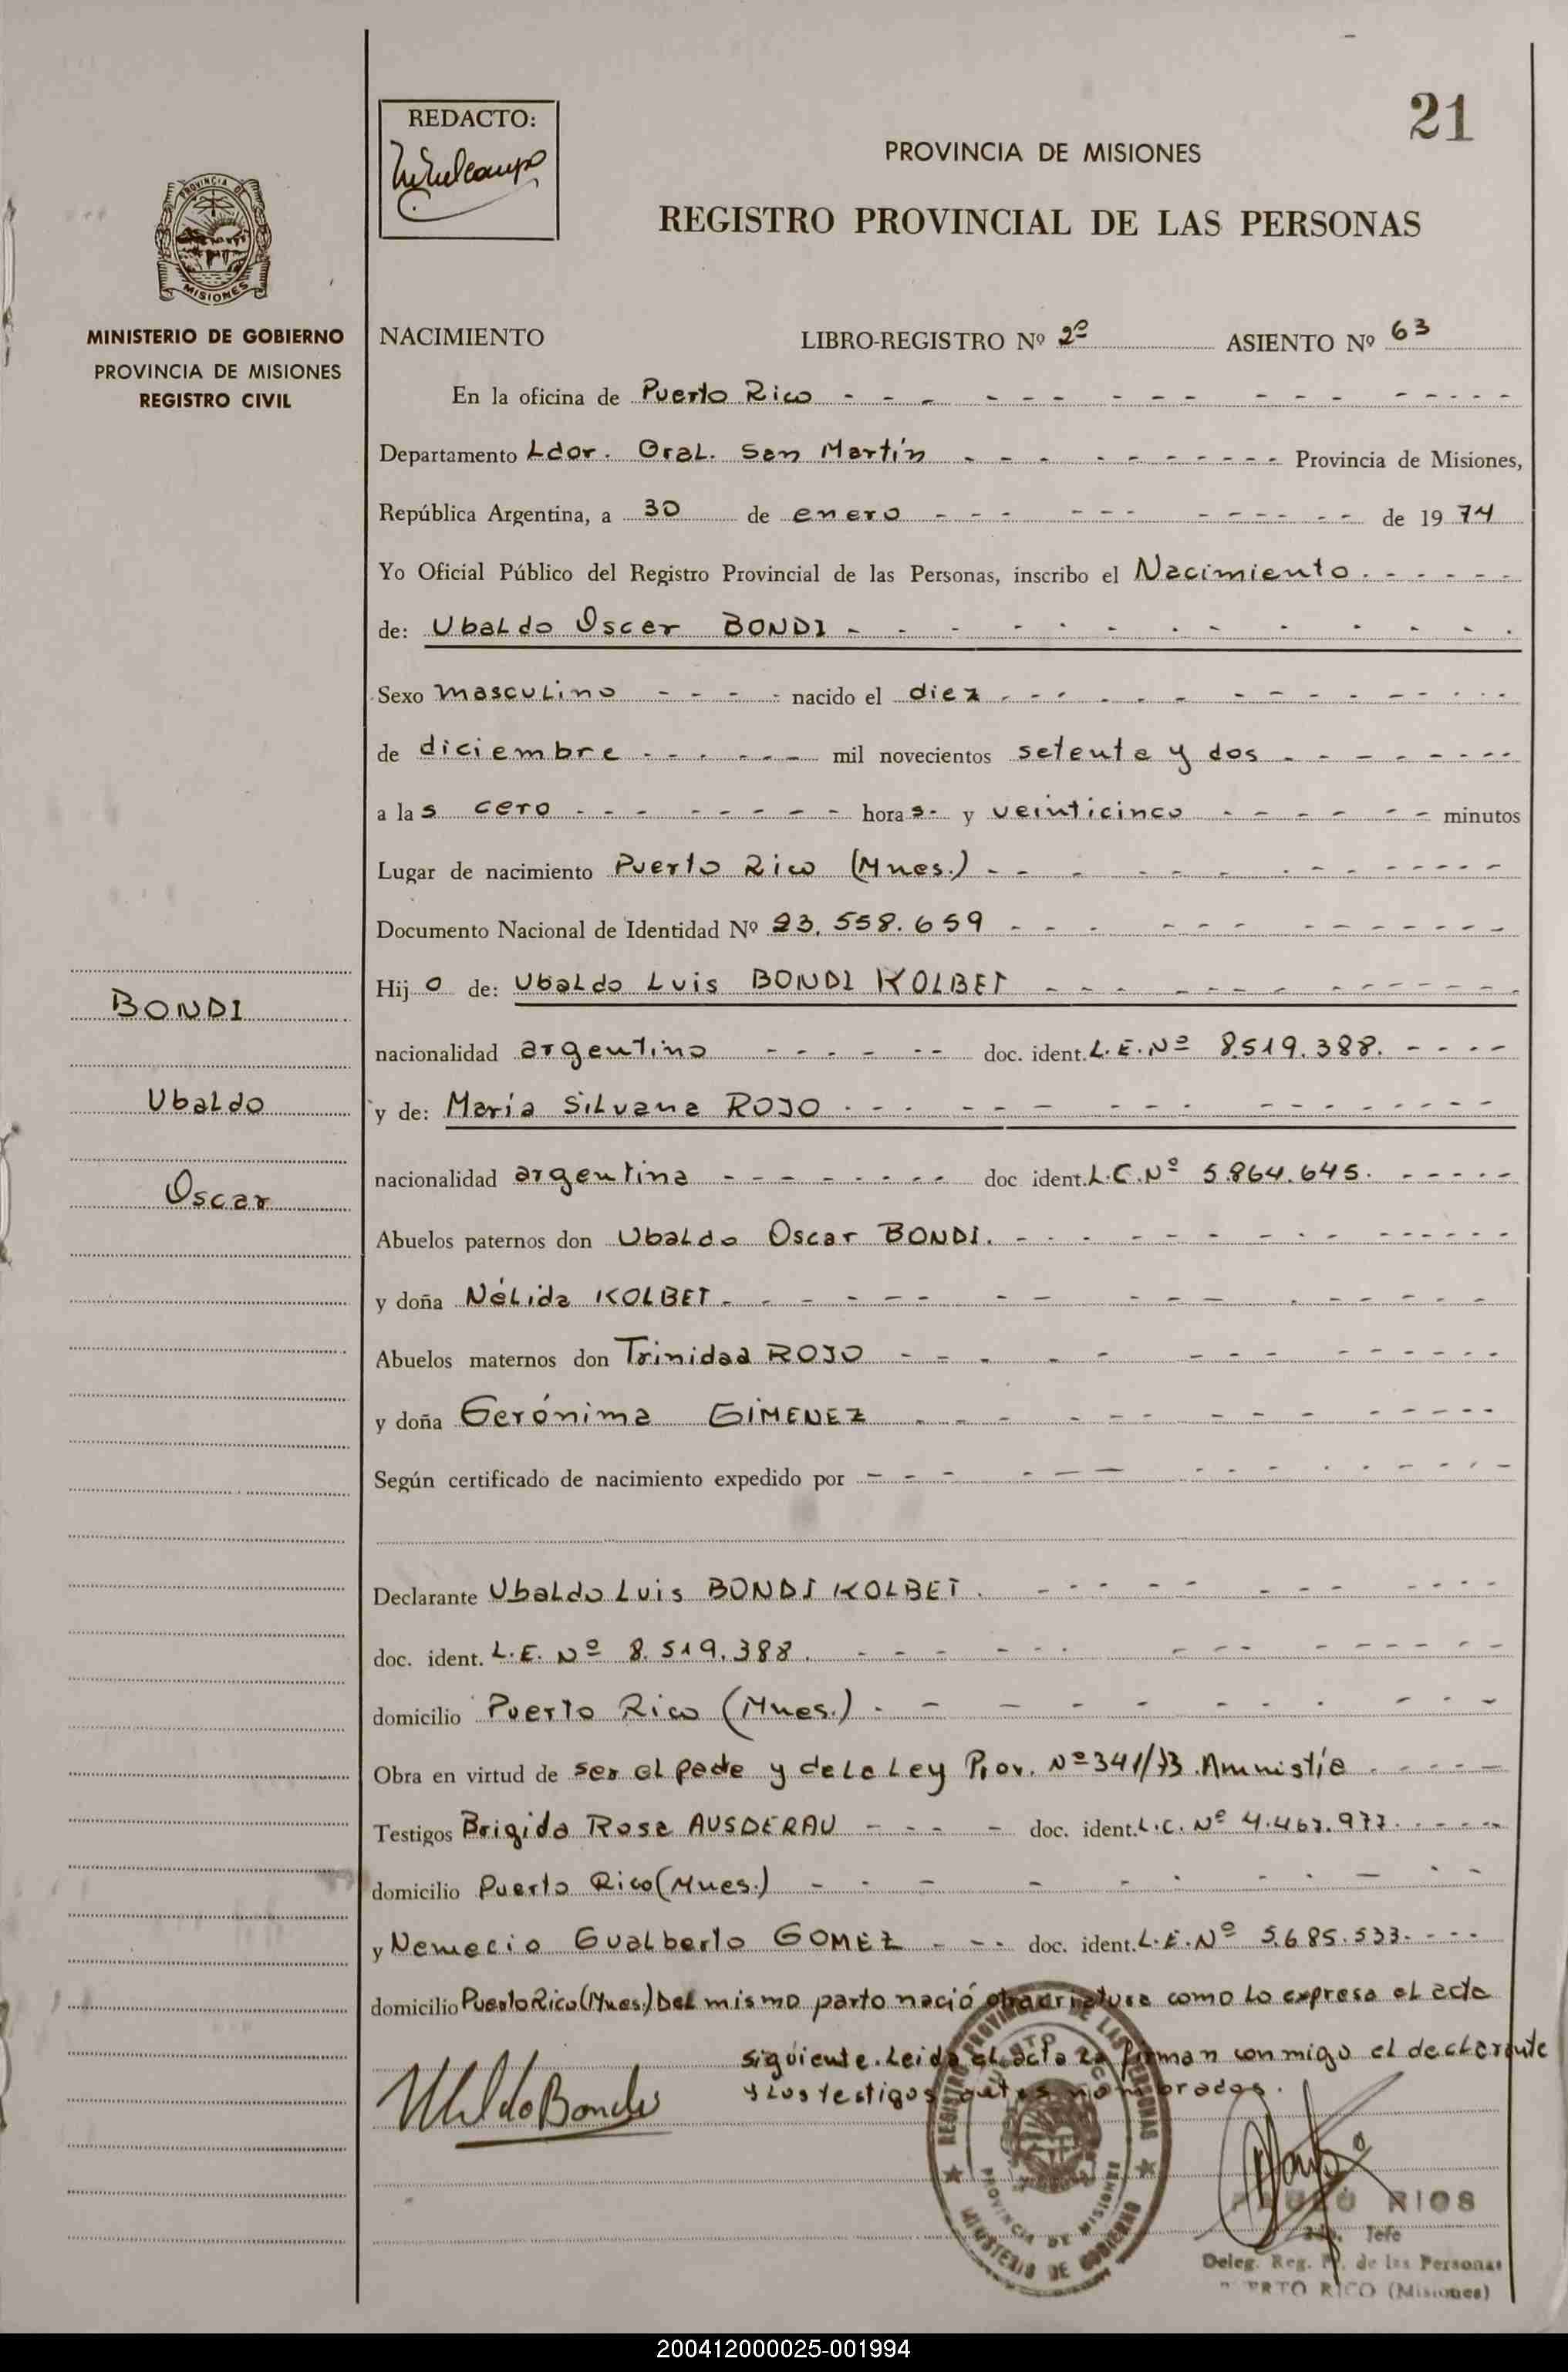 21
REDACTO:
PROVINCIA DE MISIONES
REGISTRO PROVINCIAL DE LAS PERSONAS
PROVINCIA DE
MISIONES
MINISTERIO DE GOBIERNO
PROVINCIA DE MISIONES
REGISTRO CIVIL
NACIMIENTO LIBRO-REGISTRO Nº 2º ASIENTO Nº 63
En la oficina de Puerto Rico
Departamento Ldor. Gral. San Martín Provincia de Misiones,
República Argentina, a 30 de enero de 1974
Yo Oficial Público del Registro Provincial de las Personas, inscribo el Nacimiento
de: Ubaldo Oscar BONDI
Sexo masculino nacido el diez
de diciembre mil novecientos setenta y dos
a las cero horas y veinticinco minutos
Lugar de nacimiento Puerto Rico (Mnes.)
Documento Nacional de Identidad Nº 23.558.659
Hijo de: Ubaldo Luis BONDI KOLBET
nacionalidad argentino doc. ident. L.E. Nº 8.519.388.
y de: María Silvana ROJO
nacionalidad argentina doc ident. L.C. Nº 5.864.645.
Abuelos paternos don Ubaldo Oscar BONDI.
y doña Nélida KOLBET
Abuelos maternos don Trinidad ROJO
y doña Gerónima GIMENEZ
Según certificado de nacimiento expedido por
Declarante Ubaldo Luis BONDI KOLBET.
doc. ident. L.E. Nº 8.519.388.
domicilio Puerto Rico (Mnes.)
Obra en virtud de ser el padre y de la Ley Prov. Nº 341/73 Amnistía
Testigos Brigida Rosa AUSDERAU doc. ident. L.C. Nº 4.467.977.
domicilio Puerto Rico (Mnes.)
y Nemecio Gualberto GOMEZ doc. ident. L.E. Nº 5.685.533.
domicilio Puerto Rico (Mnes.) Del mismo parto nació otra criatura como lo expresa el acta
siguiente. Leida el acta la firman conmigo el declarante
y los testigos antes nombrados.
BONDI
Ubaldo
Oscar
Ubaldo Bondi
REGISTRO PROVINCIAL DE LAS PERSONAS
PROVINCIA DE MISIONES
MINISTERIO DE GOBIERNO
RIOS
Jefe
Deleg. Reg. P. de las Personas
PUERTO RICO (Misiones)
200412000025-001994